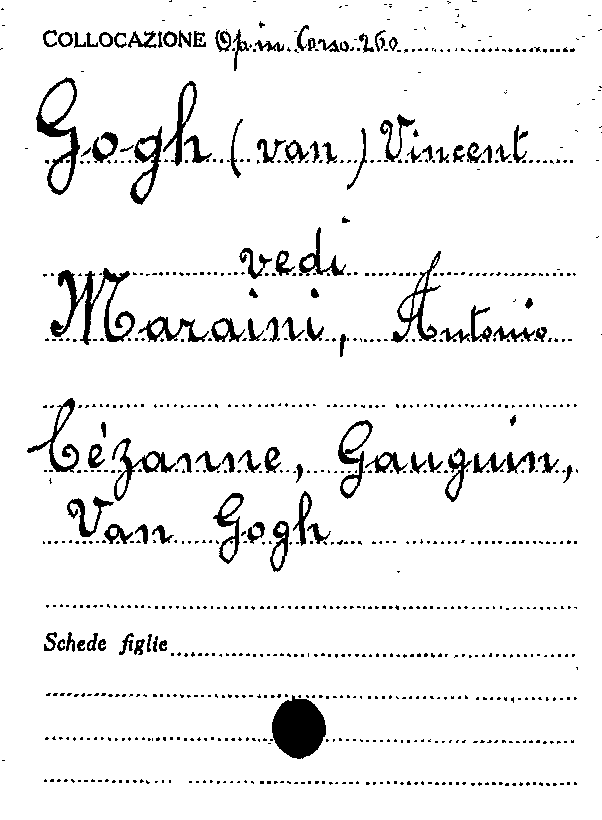 COLLOCAZIONE Op. in Corso 260
Gogh (van) Vincent
vedi
Maraini, Antonio
Cézanne, Gauguin,
Van Gogh
Schede figlie